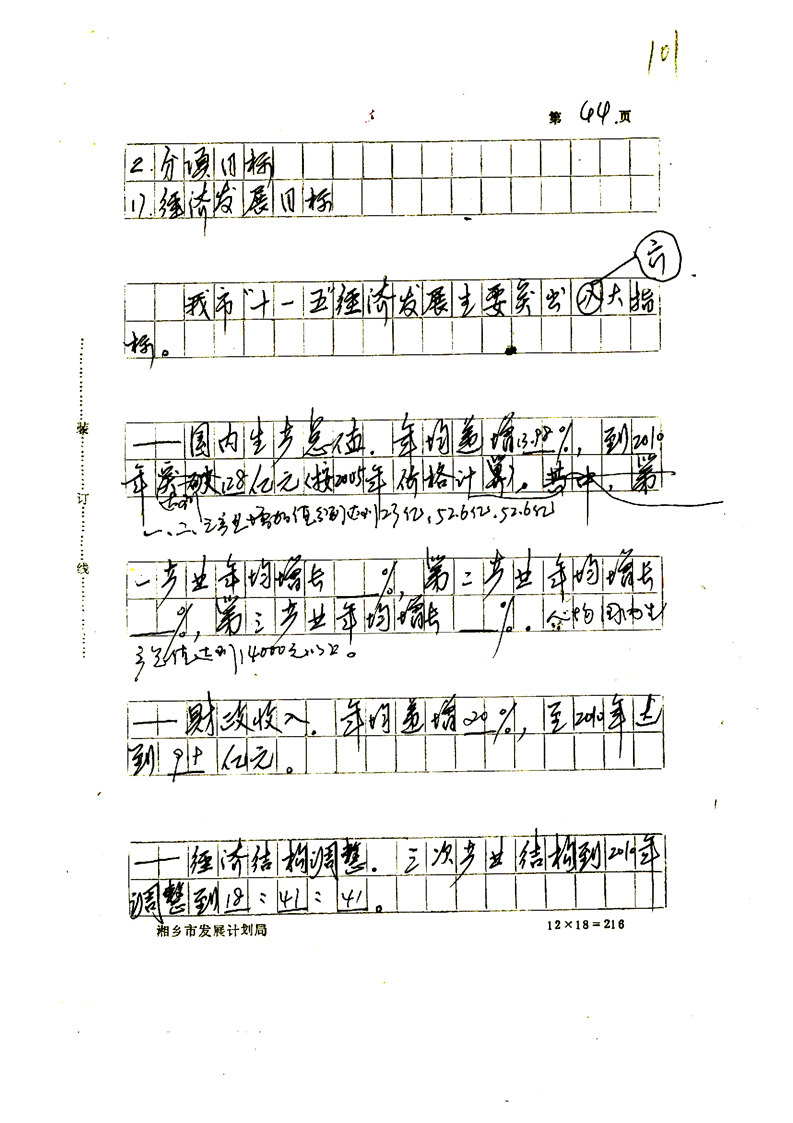 101
第 44 页
2.分项目标
1).经济发展目标
六
我市“十一五”经济发展主要突出八大指
标。
装订线
——国内生产总值.年均递增13.98%,到2010
年突破128亿元(按2005年价格计算)。其中,第
达到
一、二、三产业增加值分别达到23亿、52.6亿、52.6亿
一产业年均增长 %,第二产业年均增长
%,第三产业年均增长 %.人均国内生
产总值达到14000元以上。
——财政收入.年均递增20%,至2010年达
到 亿元。
——经济结构调整.三次产业结构到2010年
调整到18:41:41。
湘乡市发展计划局 12×18=216